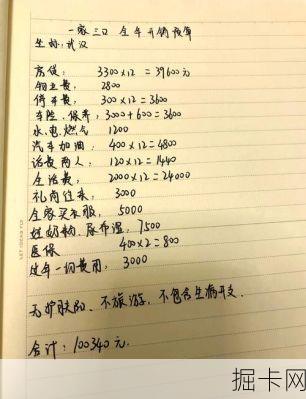 一家三口 全年开销预算
坐标:武汉
房贷: 3300×12=39600元
物业费: 2800
停车费: 300×12=3600
车险、保养: 3000+600=3600
水、电、燃气 1200
汽车加油: 400×12=4800
话费两人: 120×12=1440
生活费: 2000×12=24000
礼尚往来: 3000
全家买衣服: 5000
娃奶粉、尿布湿: 7500
医保 400×2=800
过年一切费用: 3000
无护肤品、不旅游、不包含生病开支.
合计: 100340元.
LET·IDEAS FLY
掘卡网